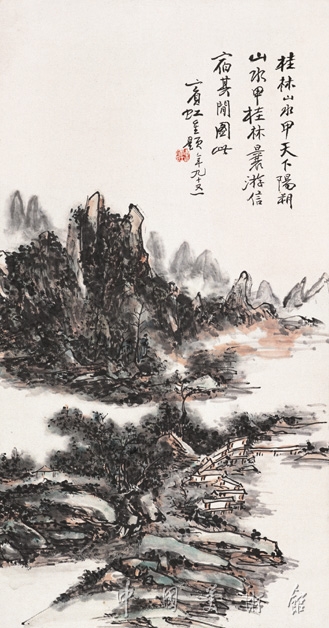 桂林山水甲天下陽朔
山水甲桂林曩游信
宿其間圖此
賓虹重題年九十又一
中國美術館